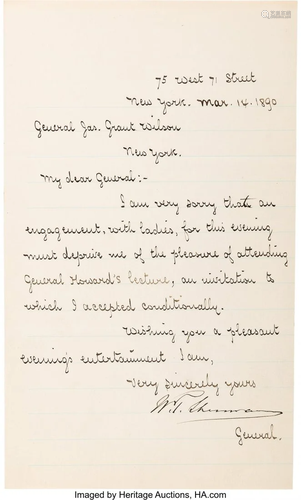 75 West 71 Street
New York. Mar. 14. 1890
General Jas. Grant Wilson
New York.
My dear General:-
I am very sorry that an
engagement, with ladies, for this evening
must deprive me of the pleasure of attending
General Howard's lecture, an invitation to
which I accepted conditionally.
Wishing you a pleasant
evening's entertainment I am,
Very Sincerely yours
W.T. Sherman
General.
Imaged by Heritage Auctions, HA.com